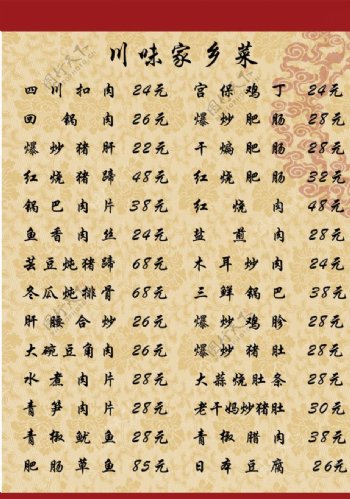 川味家乡菜
四川扣肉 24元 宫保鸡丁 24元
回锅肉 26元 爆炒肥肠 28元
爆炒猪肝 22元 干煸肥肠 28元
红烧猪蹄 48元 红烧肥肠 32元
锅巴肉片 38元 红烧肉 48元
鱼香肉丝 24元 盐煎肉 28元
芸豆炖猪蹄 68元 木耳炒肉 24元
冬瓜炖排骨 68元 三鲜锅巴 38元
肝腰合炒 26元 爆炒鸡胗 28元
大碗豆角肉 26元 爆炒猪肚 28元
水煮肉片 28元 大蒜烧肚条 28元
青笋肉片 28元 老干妈炒猪肚 30元
青椒鱿鱼 28元 青椒腊肉 38元
肥肠草鱼 85元 日本豆腐 26元